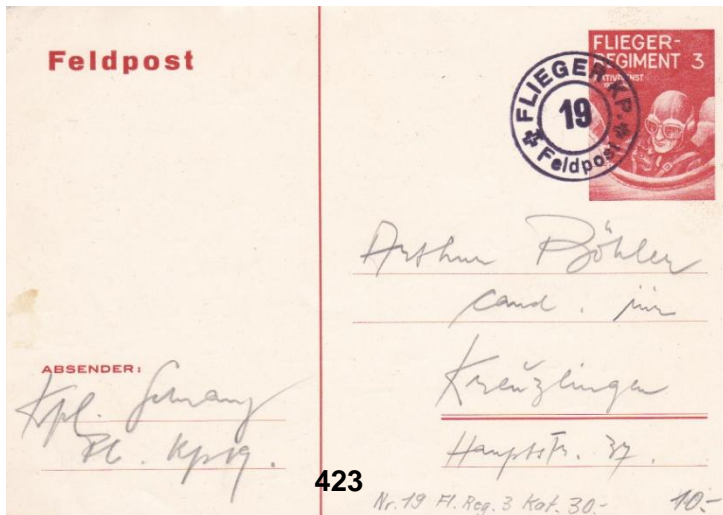 Feldpost
FLIEGER-
REGIMENT 3
AKTIVDIENST
FLIEGER KP.
19
Feldpost
Arthur Böhler
cand. jur
Kreuzlingen
Hauptstr. 37.
ABSENDER:
Kpl. Schranz
Fl. Kp 19.
423
Nr. 19 Fl. Reg. 3 Kat. 30.-
10.-